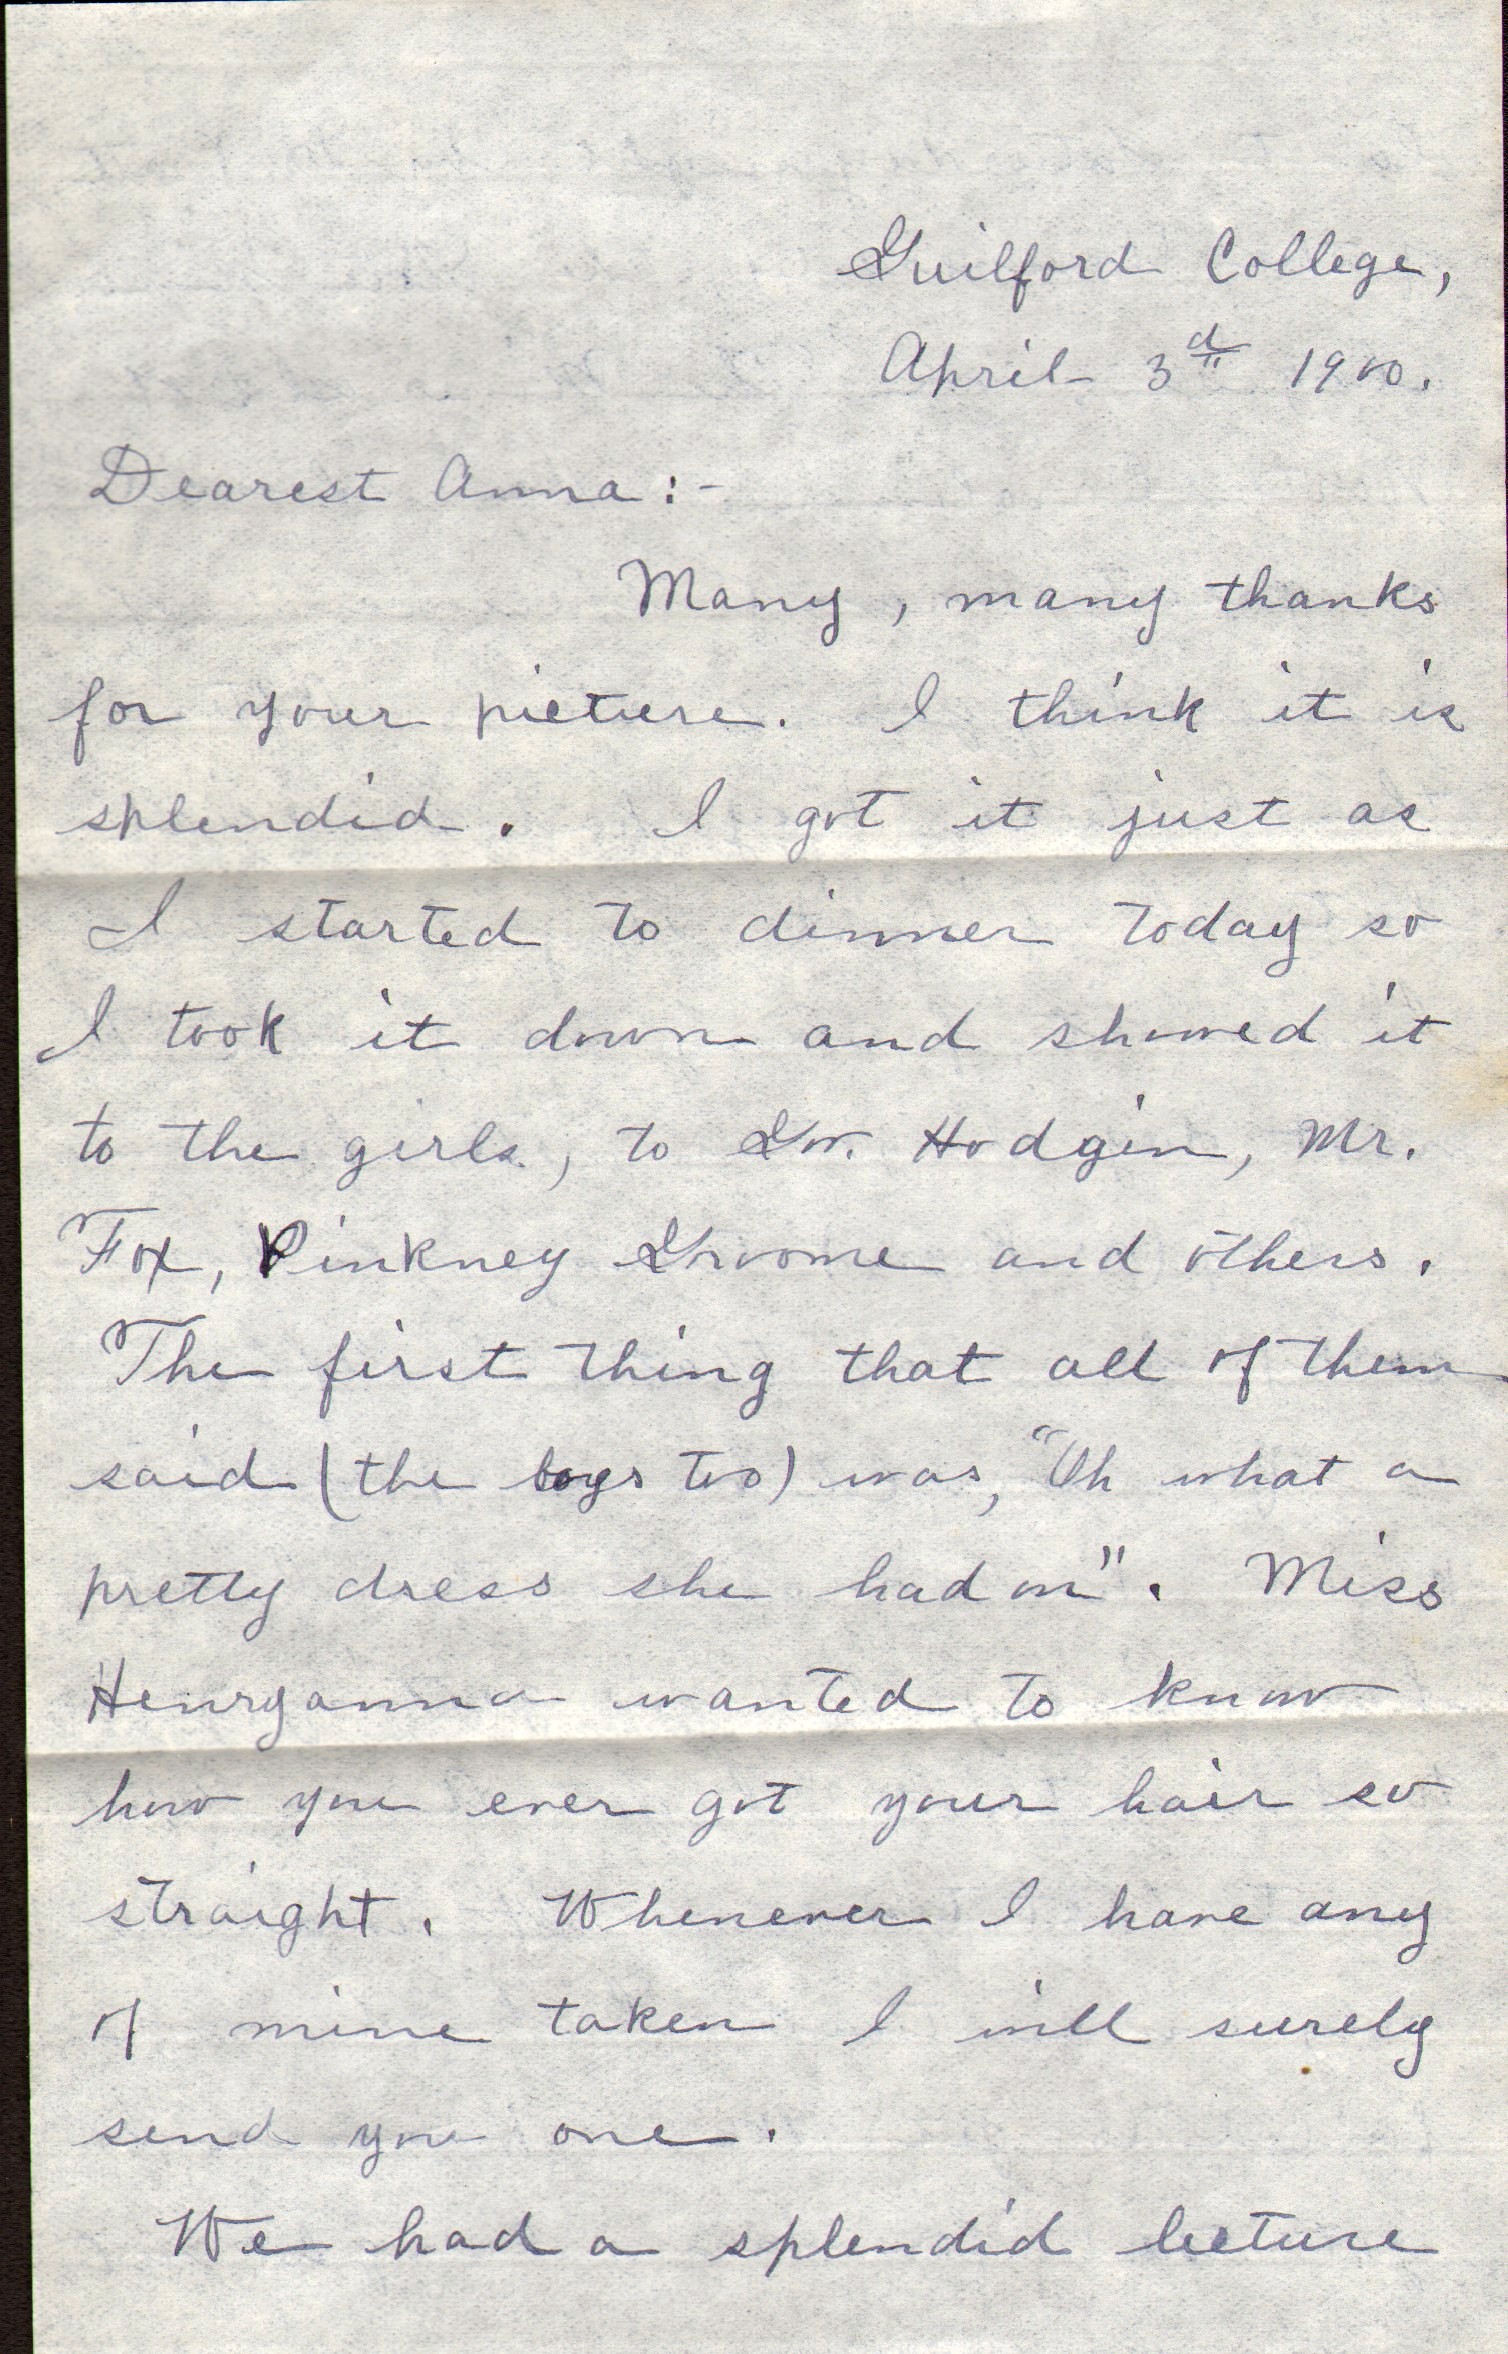 Guilford College,
April 3d 1900.
Dearest Anna:-
Many, many thanks
for your picture. I think it is
splendid. I got it just as
I started to dinner today so
I took it down and showed it
to the girls, to Geo. Hodgin, Mr.
Fox, Pinkney Groome and others.
The first thing that all of them
said (the boys too) was, "Oh what a
pretty dress she had on". Miss
Henryanna wanted to know
how you ever got your hair so
straight. Whenever I have any
of mine taken I will surely
send you one.
We had a splendid lecture